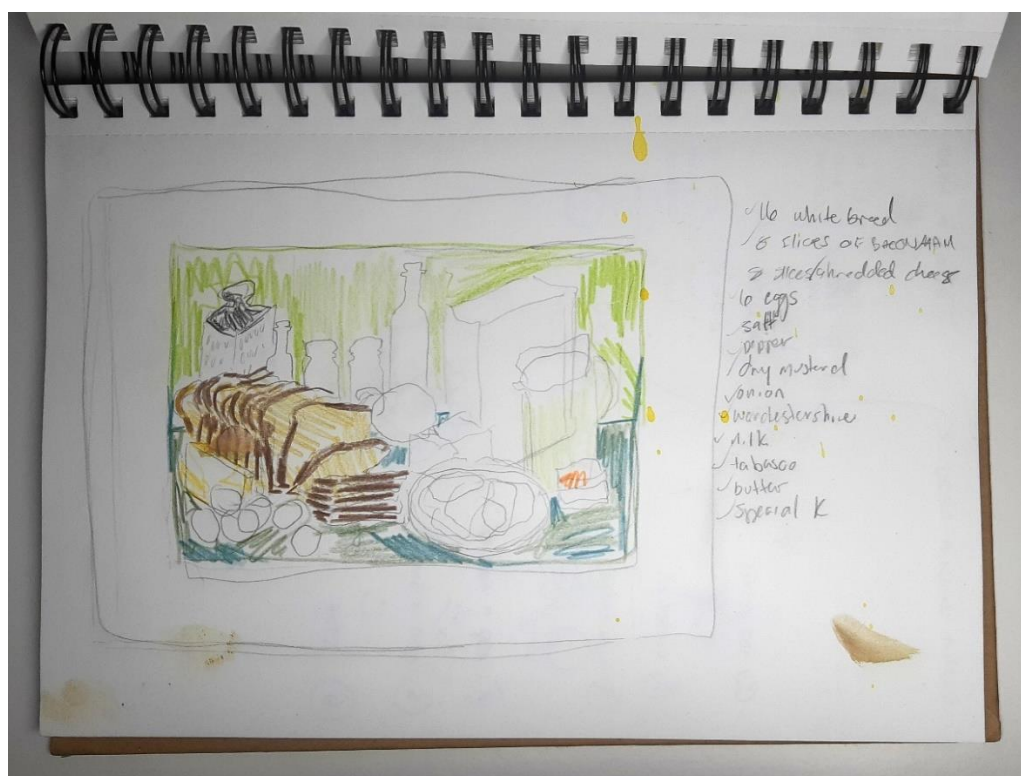 16 white bread
8 slices of bacon/HAM
slices/shredded cheese
6 eggs
salt
pepper
dry mustard
onion
worcestershire
milk
tabasco
butter
special K